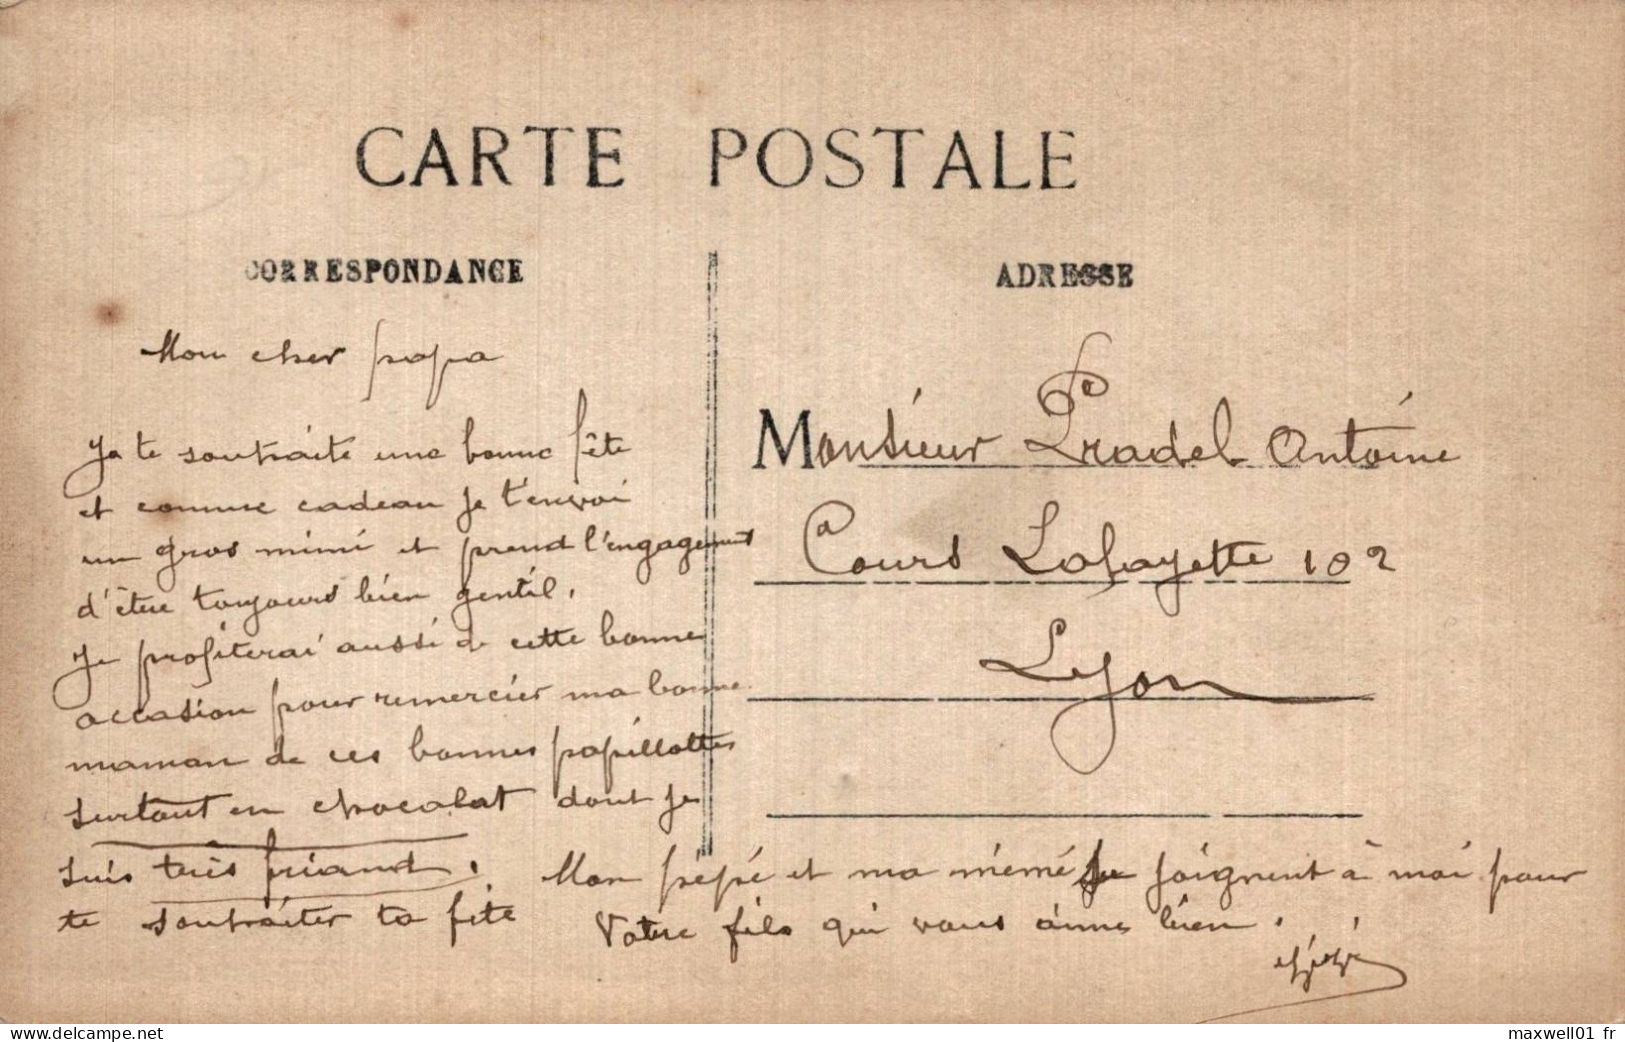 CARTE POSTALE
CORRESPONDANCE
ADRESSE
Mon cher papa
Je te souhaite une bonne fête
et comme cadeau je t'envoi
un gros mimi et prend l'engagement
d'être toujours bien gentil,
Je profiterai aussi de cette bonne
occasion pour remercier ma bonne
maman de ces bonnes papillottes
surtout en chocolat dont je
suis très friand.
Mon pépé et ma mémé se joignent à moi pour
te souhaiter ta fête
Votre fils qui vous aime bien.
Monsieur Pradel Antoine
Cours Lafayette 102
Lyon
maxwell01 fr
www.delcampe.net